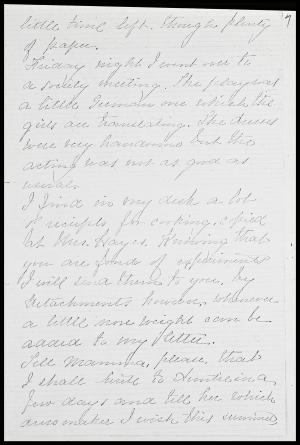 7
little time left. though plenty
of paper.
Friday night I went over to
a society meeting. The play was
a little German one which the
girls are translating. The dresses
were very handsome but the
acting was not as good as
usual.
I find in my desk a lot
of receipts, for cooking, copied
at Mrs. Hayes. Knowing that
you are fond of experiments
I will send them to you, by
detachments however, whenever
a little more weight can be
added to my letter.
Tell Mamma, please, that
I shall write to in a
few days and tell her which
dressmaker I wish this summer